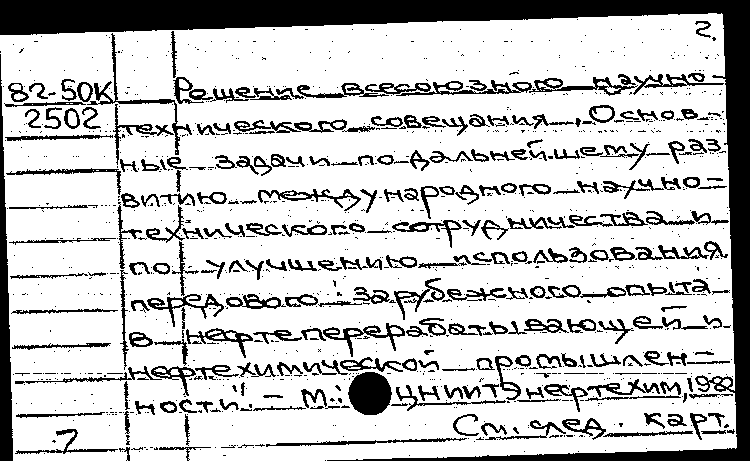 2.
82-50К Решение всесоюзного научно-
2502 технического совещания „Основ-
ные задачи по дальнейшему раз-
витию международного научно-
технического сотрудничества и
по улучшению использования
передового зарубежного опыта
в нефтеперерабатывающей и
нефтехимической промышлен-
ности". - М.: ЦНИИТЭнефтехим, 1982
7 См. след. карт.